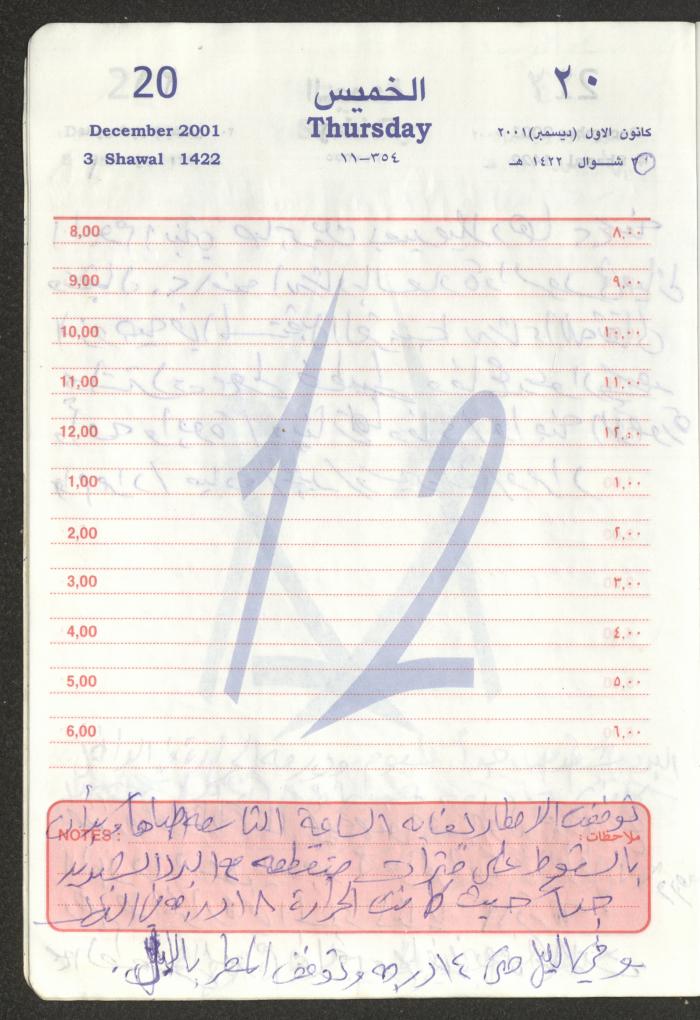 20
الخميس
٢٠
December 2001
Thursday
كانون الاول (ديسمبر) ٢٠٠١
3 Shawal 1422
٣٥٤–١١
٣ شـوال ١٤٢٢ هـ
8,00 ٨,٠٠
9,00 ٩,٠٠
10,00 ١٠,٠٠
11,00 ١١,٠٠
12,00 ١٢,٠٠
1,00 ١,٠٠
2,00 ٢,٠٠
3,00 ٣,٠٠
4,00 ٤,٠٠
5,00 ٥,٠٠
6,00 ٦,٠٠
12
توقفت الامطار لغاية الساعة التاسعة صباحاً وبدأت
NOTES : ملاحظات :
بالسقوط على فترات متقطعة مع البرد الشديد
جداً حيث كانت الحرارة ١٨ درجة في النهار
وفي الليل حتى ١٤ درجه وتوقف المطر بالليل.